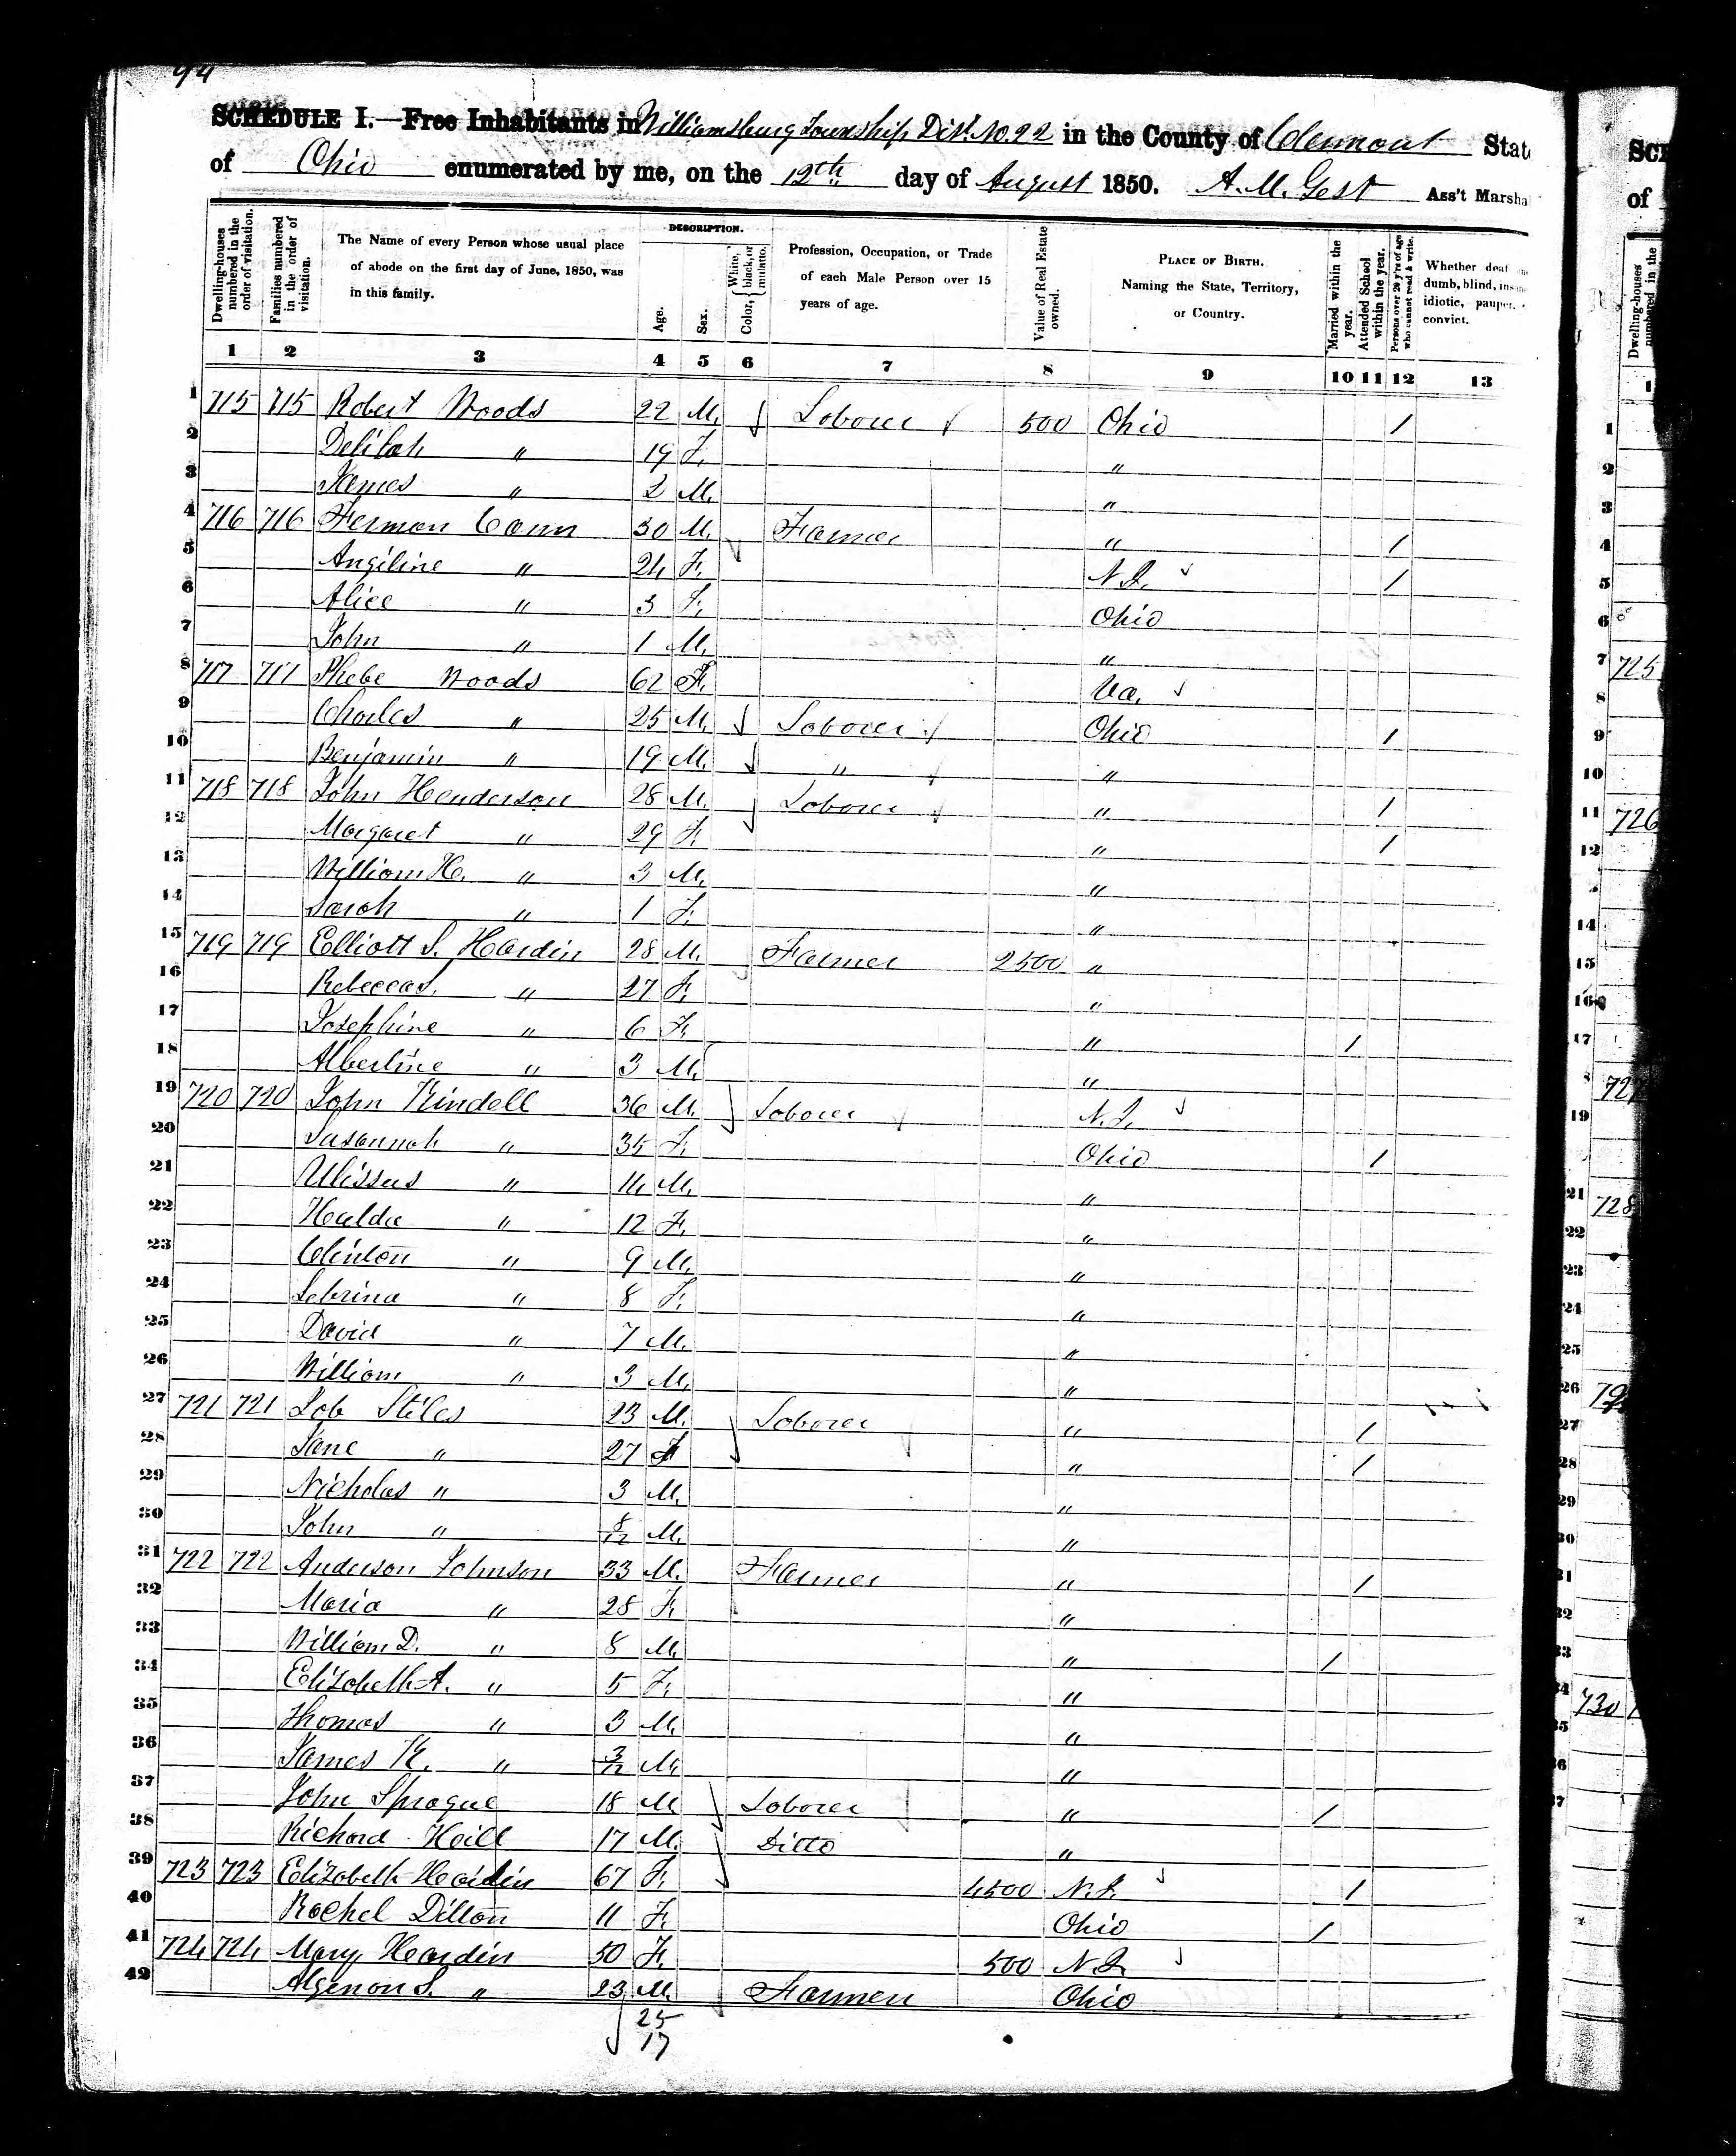 94
SCHEDULE I.—Free Inhabitants in Williamsburg Township Dist. No. 22 in the County of Clermont State
of Ohio enumerated by me, on the 12th day of August 1850. A. M. Gest Ass't Marshal
Dwelling-houses numbered in the order of visitation. Families numbered in the order of visitation. The Name of every Person whose usual place of abode on the first day of June, 1850, was in this family. DESCRIPTION. Age. Sex. Color, { White, black, or mulatto. Profession, Occupation, or Trade of each Male Person over 15 years of age. Value of Real Estate owned. PLACE OF BIRTH. Naming the State, Territory, or Country. Married within the year. Attended School within the year. Persons over 20 y'rs of age who cannot read & write. Whether deaf and dumb, blind, insane, idiotic, pauper, or convict.
1 2 3 4 5 6 7 8 9 10 11 12 13
1 715 715 Robert Woods 22 M. Laborer 500 Ohio /
2 Delilah " 19 F. "
3 James " 2 M. "
4 716 716 Fermon Conn 30 M. Farmer " /
5 Angiline " 24 F. N.J. /
6 Alice " 3 F. Ohio
7 John " 1 M. "
8 717 717 Phebe Woods 62 F. Va.
9 Charles " 25 M. Laborer Ohio /
10 Benjamin " 19 M. " "
11 718 718 John Henderson 28 M. Laborer " /
12 Margaret " 29 F. " /
13 William H. " 3 M. "
14 Sarah " 1 F. "
15 719 719 Elliott S. Hardin 28 M. Farmer 2500 "
16 Rebecca S. " 27 F. "
17 Josephine " 6 F. " /
18 Alberline " 3 M. "
19 720 720 John Kindell 36 M. Laborer N.J.
20 Susannah " 35 F. Ohio /
21 Ulissus " 14 M. "
22 Hulda " 12 F. "
23 Clinton " 9 M. "
24 Sebrina " 8 F. "
25 David " 7 M. "
26 William " 3 M. "
27 721 721 Job Stiles 23 M. Laborer " /
28 Jane " 27 F " /
29 Nicholas " 3 M. "
30 John " 8/12 M. "
31 722 722 Anderson Johnson 33 M. Farmer " /
32 Maria " 28 F. "
33 William D. " 8 M. " /
34 Elizabeth A. " 5 F. "
35 Thomas " 3 M. "
36 James K. " 3/12 M. "
37 John Sprague 18 M Laborer " /
38 Richard Hill 17 M. Ditto "
39 723 723 Elizabeth Hardin 67 F. 4500 N.J. /
40 Rachel Dillon 11 F. Ohio /
41 724 724 Mary Hardin 50 F. 500 N.J.
42 Algenon S. " 23 M. Farmer Ohio
25
17
SCH
of
Dwelling-houses numbered in the
1
1
2
3
4
5
6
7 725
8
9
10
11 726
12
14
15
16
17
19
21 728
22
23
24
25
26
27
28
29
30
31
730